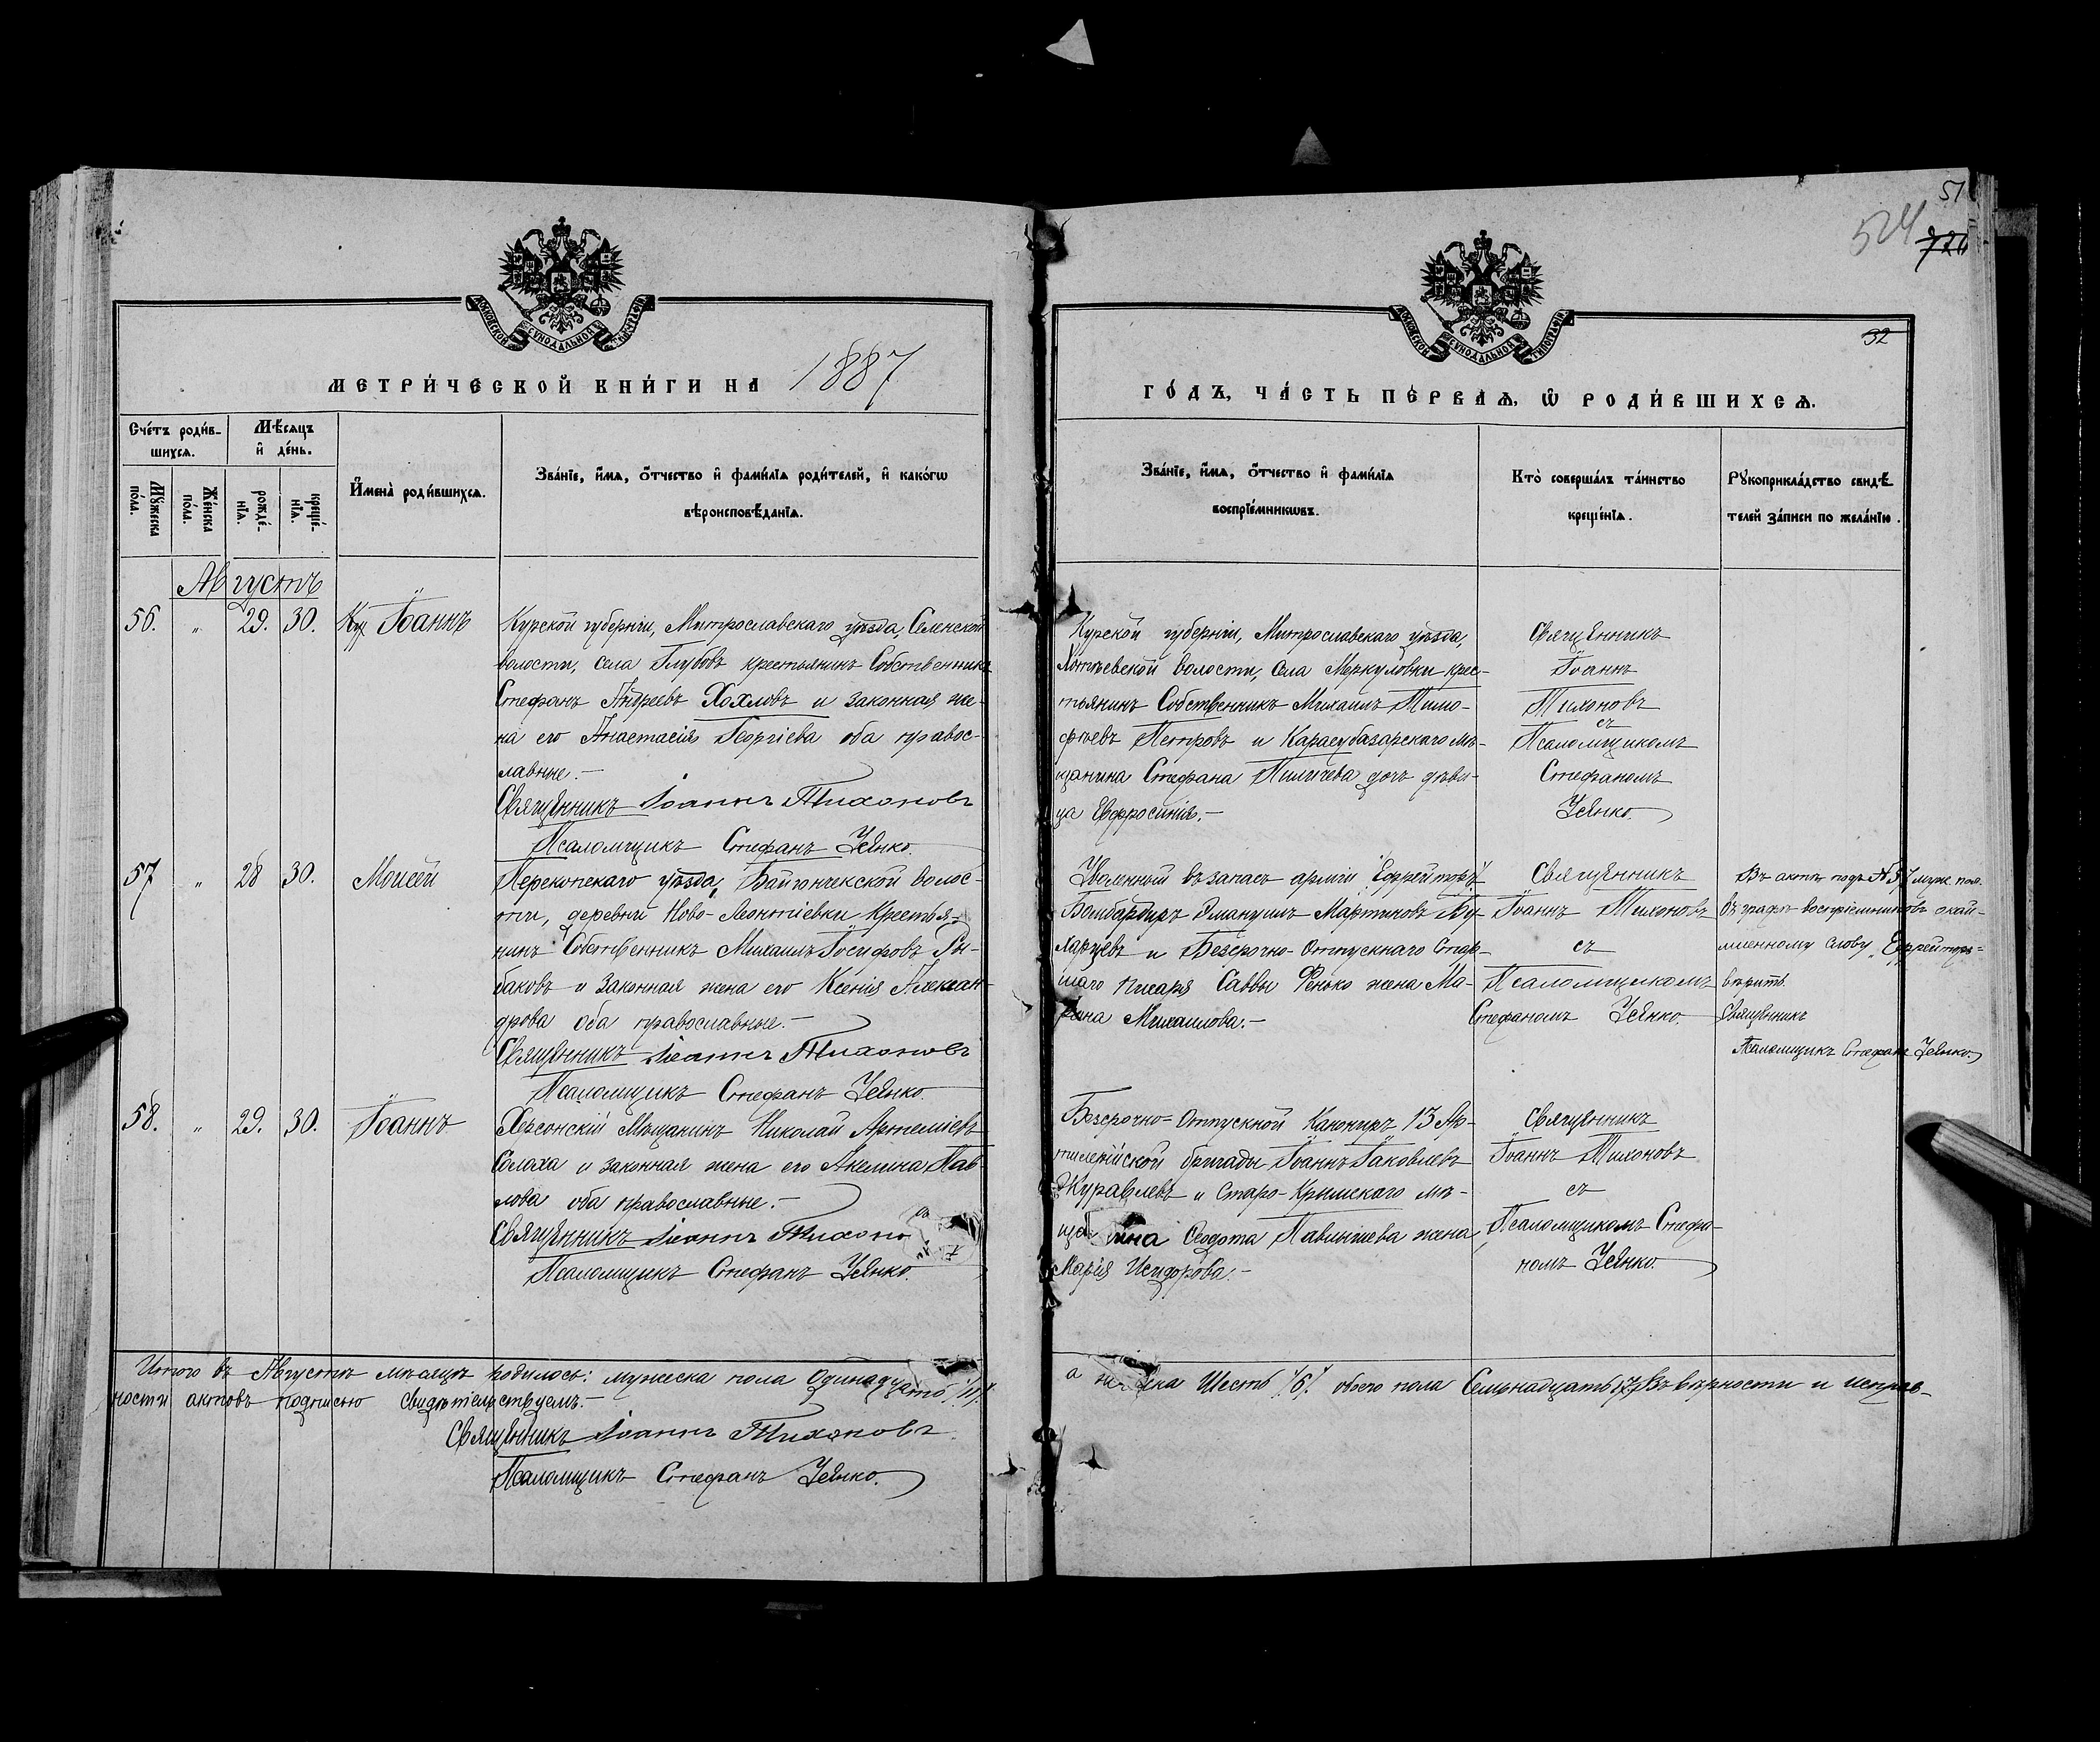 51
524
726
32
МОСКОВСКОЙ СѴНОДАЛЬНОЙ ТИПОГРАФІИ
МОСКОВСКОЙ СѴНОДАЛЬНОЙ ТИПОГРАФІИ
МЕТРИ́ЧЕСКОЙ КНИ́ГИ НА 1887
ГО́ДЪ, ЧА́СТЬ ПЕ́РВАѦ, Ѡ҆ РОДИ́ВШИХСѦ.
Сче́тъ роди́в-
шихсѧ.
Мѣ́сѧцъ
и҆ де́нь.
Мꙋ́жеска
по́ла.
Же́нска
по́ла.
рожде́-
нїѧ.
креще́-
нїѧ.
И҆мена̀ роди́вшихсѧ.
Зва́нїе, и҆́мѧ, ѻ҆́тчество и҆ фами́лїѧ роди́телей, и҆ како́гѡ
вѣроисповѣ́данїѧ.
Зва́нїе, и҆́мѧ, ѻ҆́тчество и҆ фами́лїѧ
воспрїе́мникѡвъ.
Кто̀ соверша́лъ та́инство
креще́нїѧ.
Рꙋкоприкла́дство свидѣ́-
телей за́писи по жела́нїю.
Августъ
56. „ 29. 30. Іоаннъ
Курской губерніи, Митрославскаго уѣзда, Селенской
волости, села Глубовъ крестьянинъ Собственникъ
Стефанъ Андреевъ Хохловъ и законная же-
на его Анастасія Георгіева оба правос-
лавные.-
Священникъ Іоаннъ Тихоновъ
Псаломщикъ Стефанъ
Курской губерніи, Митрославскаго уѣзда,
волости, села Меркуловки крес-
тьянинъ Собственникъ Михаилъ Тимо-
фѣевъ Петровъ и Карасубазарскаго мѣ-
щанина Стефана дочь дѣви-
ца Евфросинія.-
Священникъ
Іоаннъ
Тихоновъ
съ
Псаломщикомъ
Стефаномъ
57 „ 28 30. Моисей
Перекопскаго уѣзда, волос-
ти, деревни Ново-Леонтіевки Крестья-
нинъ Собственникъ Михаилъ Іосифовъ Ры-
баковъ и законная жена его Ксенія Алексан-
дрова оба православные.-
Священникъ Іоаннъ Тихоновъ
Псаломщикъ Стефанъ
Уволенный въ запасъ арміи "Ефрейторъ"
Бомбардиръ Эмануилъ Мартиновъ Бу-
и Безсрочно-Отпускнаго Стар-
шаго писаря Саввы Фенько жена Ма-
рина Михаилова.-
Священникъ
Іоаннъ Тихоновъ
съ
Псаломщикомъ
Стефаномъ
Въ актѣ подъ №57 муж. пол.
въ графѣ воспріемниковъ окай-
мленному слову „Ефрейторъ"
вѣрить.
Священникъ
Псаломщикъ Стефанъ
58. „ 29. 30. Іоаннъ
Херсонскій Мѣщанинъ Николай Артеміевъ
Солоха и законная жена его Акелина Пав-
лова оба православные.-
Священникъ Іоаннъ Тихоно
Псаломщикъ Стефанъ
Безсрочно-Отпускной Канониръ 13 Ар-
тилерійской бригады Іоаннъ Іаковлевъ
Журавлевъ и Старо-Крымскаго мѣ-
щанина Ѳеодота жена
Марія Исидорова.-
Священникъ
Іоаннъ Тихоновъ
съ
Псаломщикомъ Стефа-
номъ
Итого въ Августѣ мѣсяцѣ родилось: мужеска пола Одинадцать /11/
а женска Шесть /6/. обоего пола Семьнадцать /17/ Въ вѣрности и исправ-
ности актовъ подписью свидѣтельствуемъ.-
Священникъ Іоаннъ Тихоновъ
Псаломщикъ Стефанъ